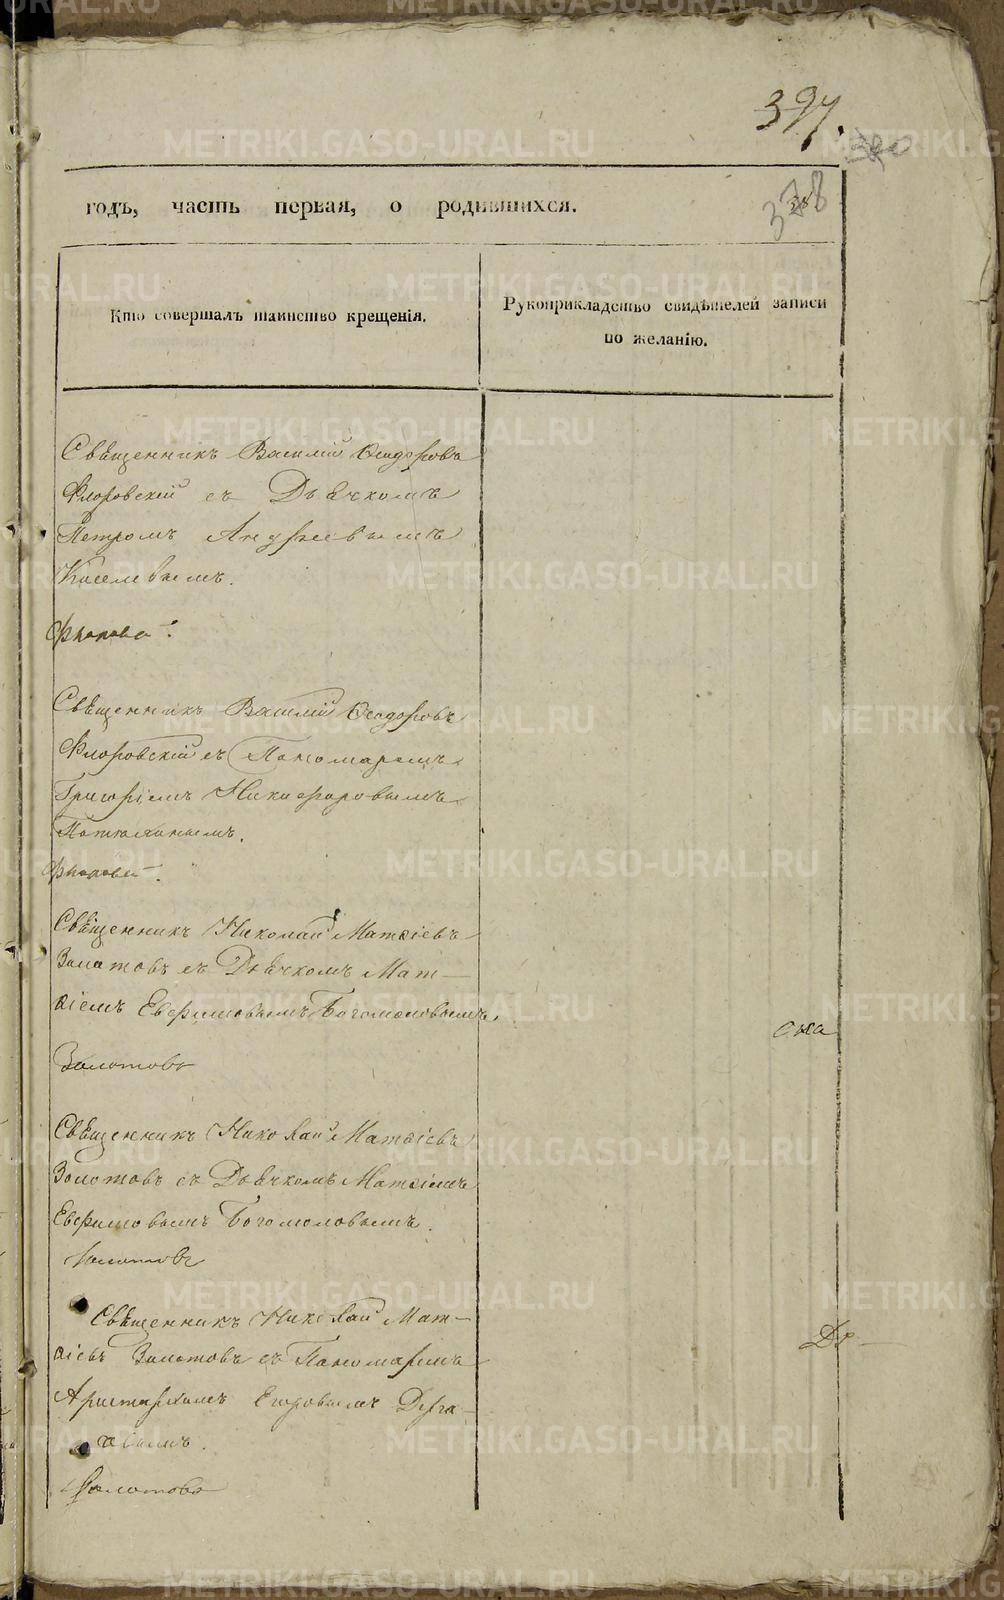 397.
380
378
годъ, часть первая, о родившихся.
Кто совершалъ таинство крещенія.
Рукоприкладство свидѣтелей записи
по желанію.
Свѣщенникъ Василій Ѳеодоровъ
Флоровскій съ Дьячкомъ
Петромъ Андреевымъ
Киселевымъ.
Свѣщенникъ Василій Ѳеодоровъ
Флоровскій съ Пономаремъ
Григоріемъ Никифоровымъ
Свѣщенникъ Николай Матѳіевъ
Золотовъ съ Дьячкомъ Мат—
ѳіемъ Евѳимовымъ Богомоловымъ.
Золотовъ
Свѣщенникъ Николай Матѳіевъ
Золотовъ съ Дьячкомъ Матѳіемъ
Евѳимовымъ Богомоловымъ.
Золотовъ
Свѣщенникъ Николай Мат—
ѳіевъ Золотовъ съ Пономаремъ
Аристархомъ Егоровымъ Дерга—
чевымъ.
Золотовъ
METRIKI.GASO-URAL.RU